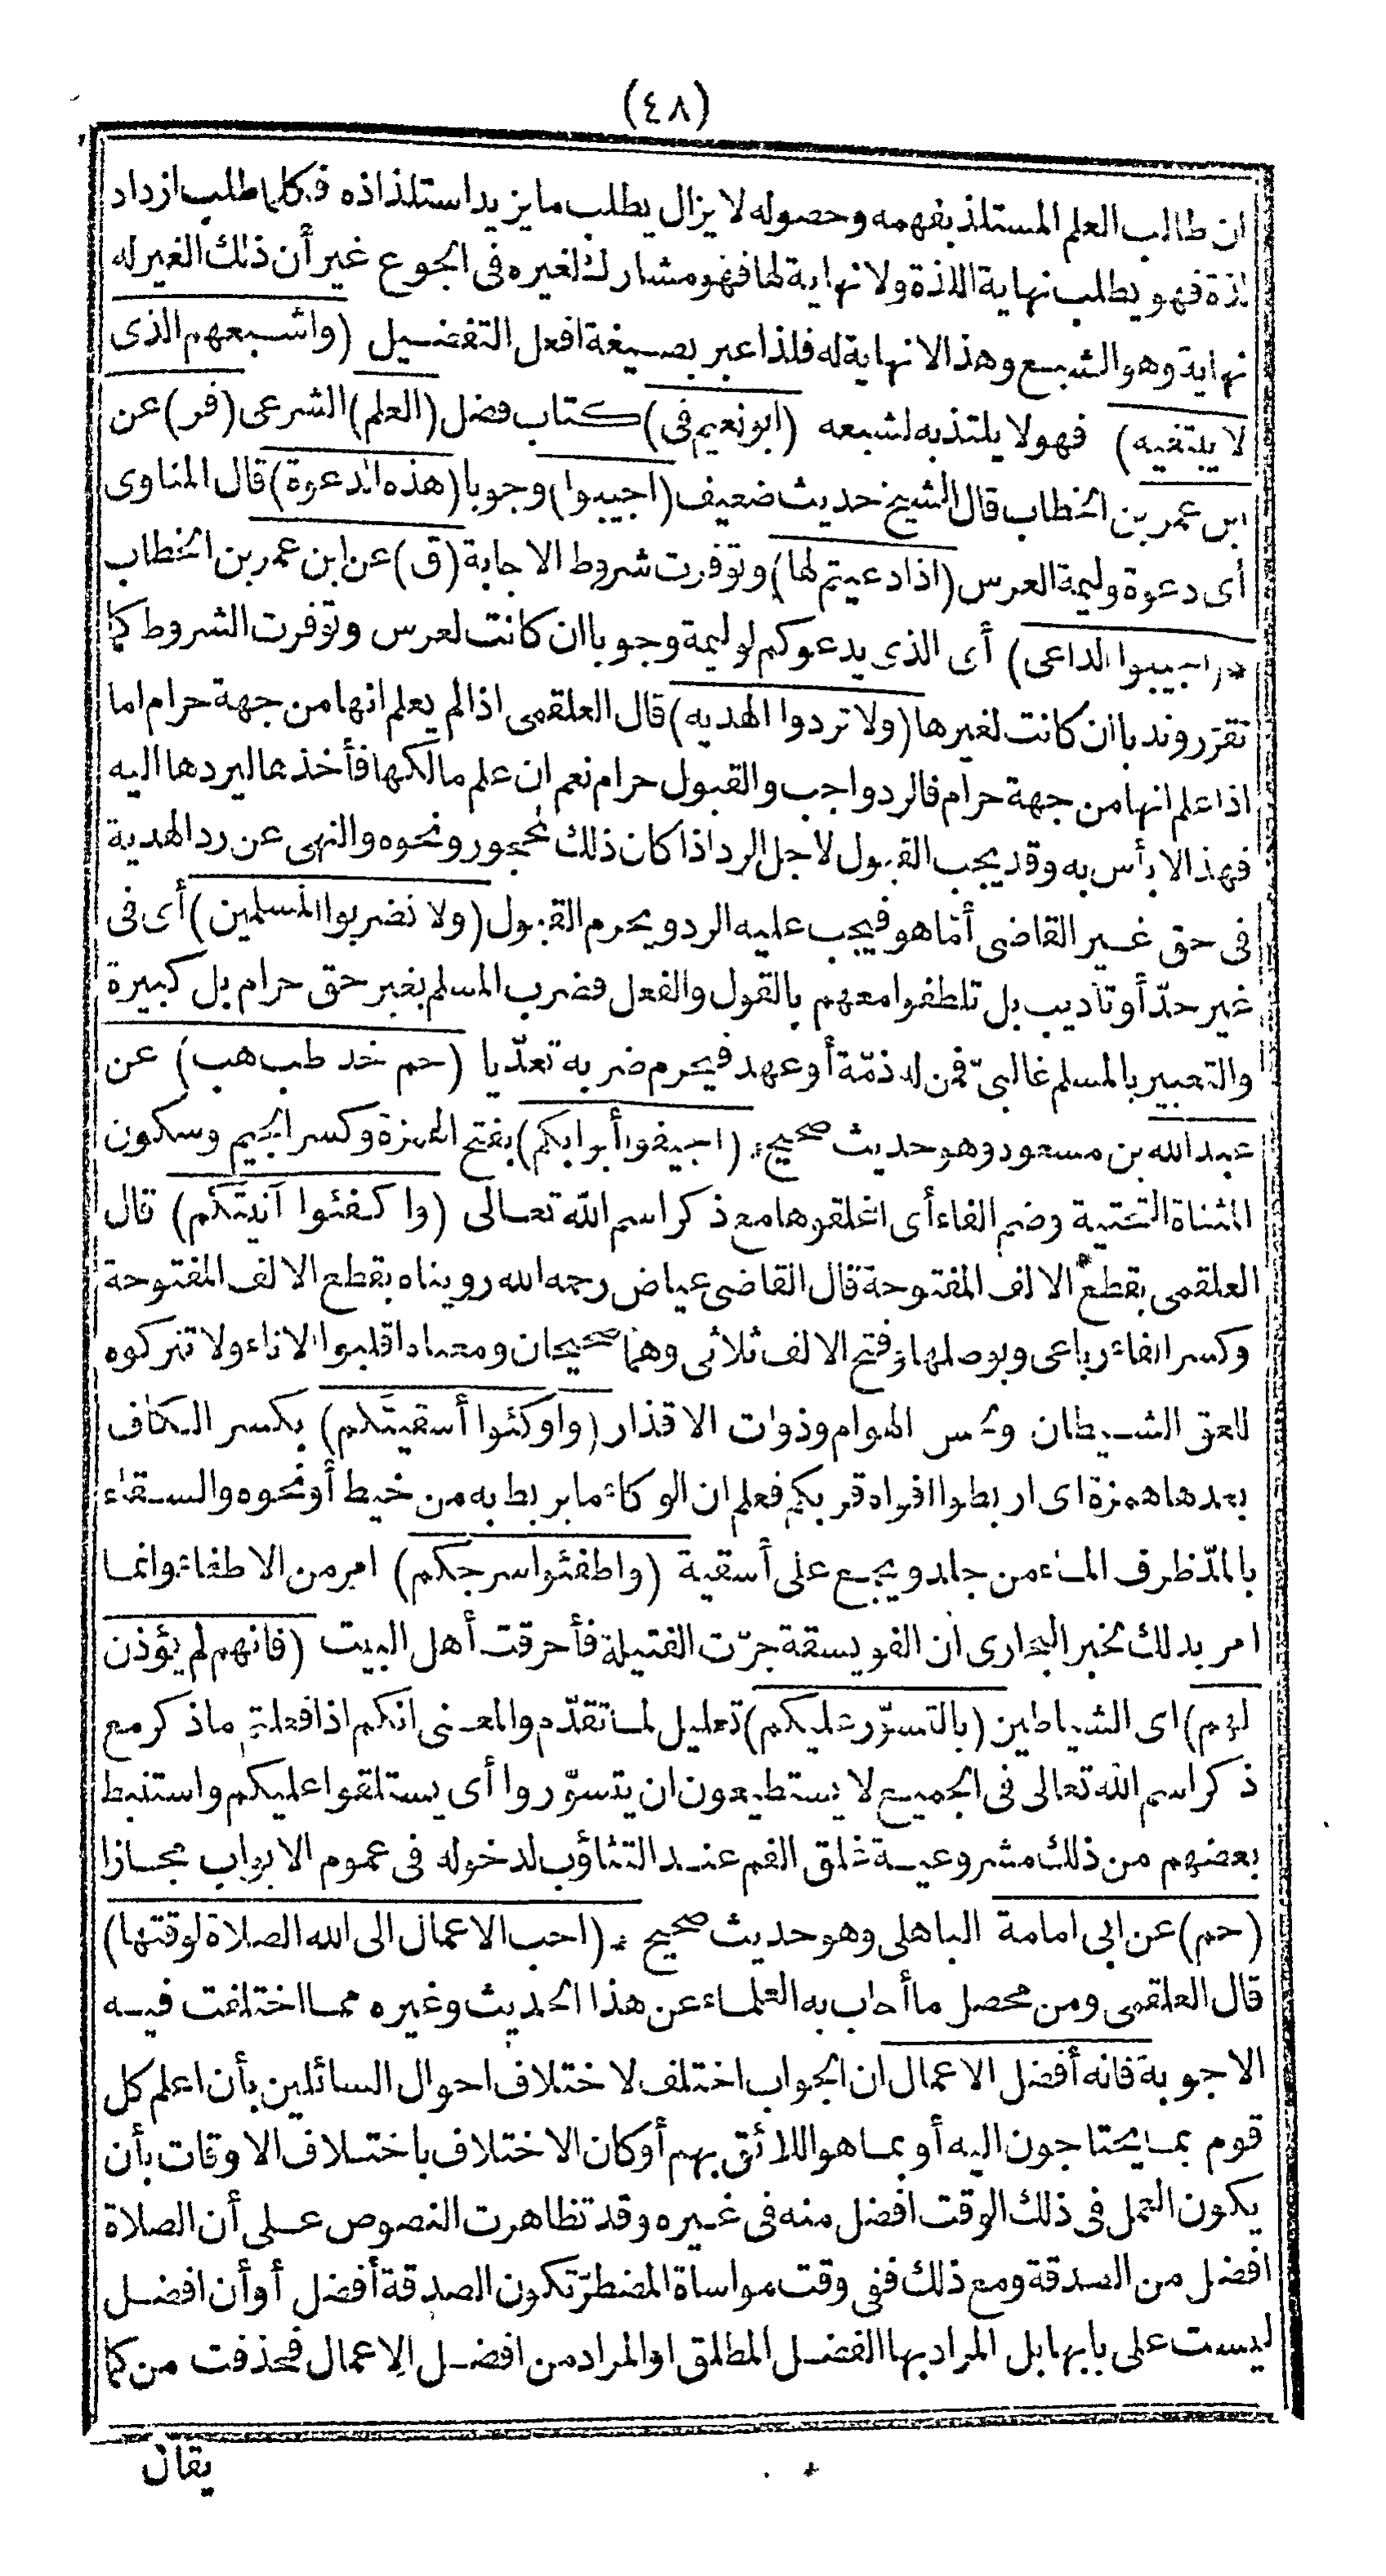 (٤٨)
ان طالب العلم المستلذ بفهمه وحصوله لا يزال يطلب ما يزيد استلذاذه فكلما طلب ازداد
لذة فهو يطلب نهاية اللذة ولا نهاية لها فهو مشارك لغيره فى الجوع غير أن ذلك الغير له
نهاية وهو الشبع وهذا لا نهاية له فلذا عبر بصيغة افعل التفضيل (واشبعهم الذى
لا يبتغيه) فهو لا يلتذ به لشبعه (ابو نعيم فى) كتاب فضل (العلم) الشرعى (فر) عن
ابن عمر بن الخطاب قال الشيخ حديث ضعيف (اجيبوا) وجوبا (هذه الدعوة) قال المناوى
أى دعوة وليمة العرس (اذا دعيتم لها) وتوفرت شروط الاجابة (ق) عن ابن عمر بن الخطاب
* (اجيبوا الداعى) أى الذى يدعوكم لوليمة وجوبا ان كانت لعرس وتوفرت الشروط كما
تقرّر وندبا ان كانت لغيرها (ولا تردوا الهديه) قال العلقمى اذا لم يعلم انها من جهة حرام اما
اذا علم انها من جهة حرام فالرد واجب والقبول حرام نعم ان علم مالكها فأخذها ليردها اليه
فهذا لا بأس به وقد يجب القبول لاجل الرد اذا كان ذلك لمحجور ونحوه والنهى عن رد الهدية
فى حق غير القاضى أمّا هو فيجب عليه الرد ويحرم القبول (ولا تضربوا المسلمين) أى فى
غير حدّ أو تاديب بل تلطفوا معهم بالقول والفعل فضرب المسلم بغير حق حرام بل كبيرة
والتعبير بالمسلم غالبىّ فمن له ذمّة أو عهد فيحرم ضربه تعدّيا (حم خد طب هب) عن
عبد الله بن مسعود وهو حديث صحيح * (اجيفوا أبوابكم) بفتح الهمزة وكسر الجيم وسكون
المثناة التحتية وضم الفاء أى اغلقوها مع ذكر اسم الله تعالى (واكفئوا آنيتكم) قال
العلقمى بقطع الالف المفتوحة قال القاضى عياض رحمه الله رويناه بقطع الالف المفتوحة
وكسر الفاء رباعى وبوصلها وفتح الالف ثلاثى وهما صحيحان ومعناه اقلبوا الاناء ولا تتركوه
للعق الشيطان ولحس الهوام وذوات الاقذار (واوكئوا أسقيتكم) بكسر الكاف
بعدها همزة اى اربطوا افواه قربكم فعلم ان الوكاء ما يربط به من خيط أو نحوه والسقاء
بالمدّ ظرف الماء من جلد ويجمع على أسقية (واطفئوا سرجكم) امر من الاطفاء وانما
امر بذلك لخبر البخارى ان الفويسقة جرّت الفتيلة فأحرقت أهل البيت (فانهم لم يؤذن
لهم) اى الشياطين (بالتسوّر عليكم) تعليل لما تقدّم والمعنى انكم اذا فعلتم ما ذكر مع
ذكر اسم الله تعالى فى الجميع لا يستطيعون ان يتسوّروا أى يستلقوا عليكم واستنبط
بعضهم من ذلك مشروعية غلق الفم عند التثاؤب لدخوله فى عموم الابواب مجازا
(حم) عن ابى امامة الباهلى وهو حديث صحيح * (احب الاعمال الى الله الصلاة لوقتها)
قال العلقمى ومن محصل ما أجاب به العلماء عن هذا الحديث وغيره مما اختلفت فيه
الاجوبة فانه أفضل الاعمال ان الجواب اختلف لاختلاف احوال السائلين بأن اعلم كل
قوم بما يحتاجون اليه أو بما هو اللائق بهم أو كان الاختلاف باختلاف الاوقات بأن
يكون العمل فى ذلك الوقت افضل منه فى غيره وقد تظاهرت النصوص على أن الصلاة
افضل من الصدقة ومع ذلك ففى وقت مواساة المضطرّ تكون الصدقة أفضل أو أن افضل
ليست على بابها بل المراد بها الفضل المطلق او المراد من افضل الاعمال فحذفت من كما
يقال